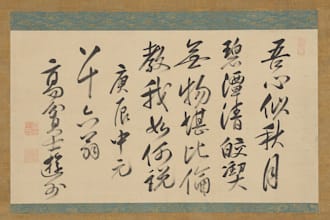 吾心似秋月
碧潭清皎潔
無物堪比倫
教我如何説
庚辰中元
八十六翁
高遊外